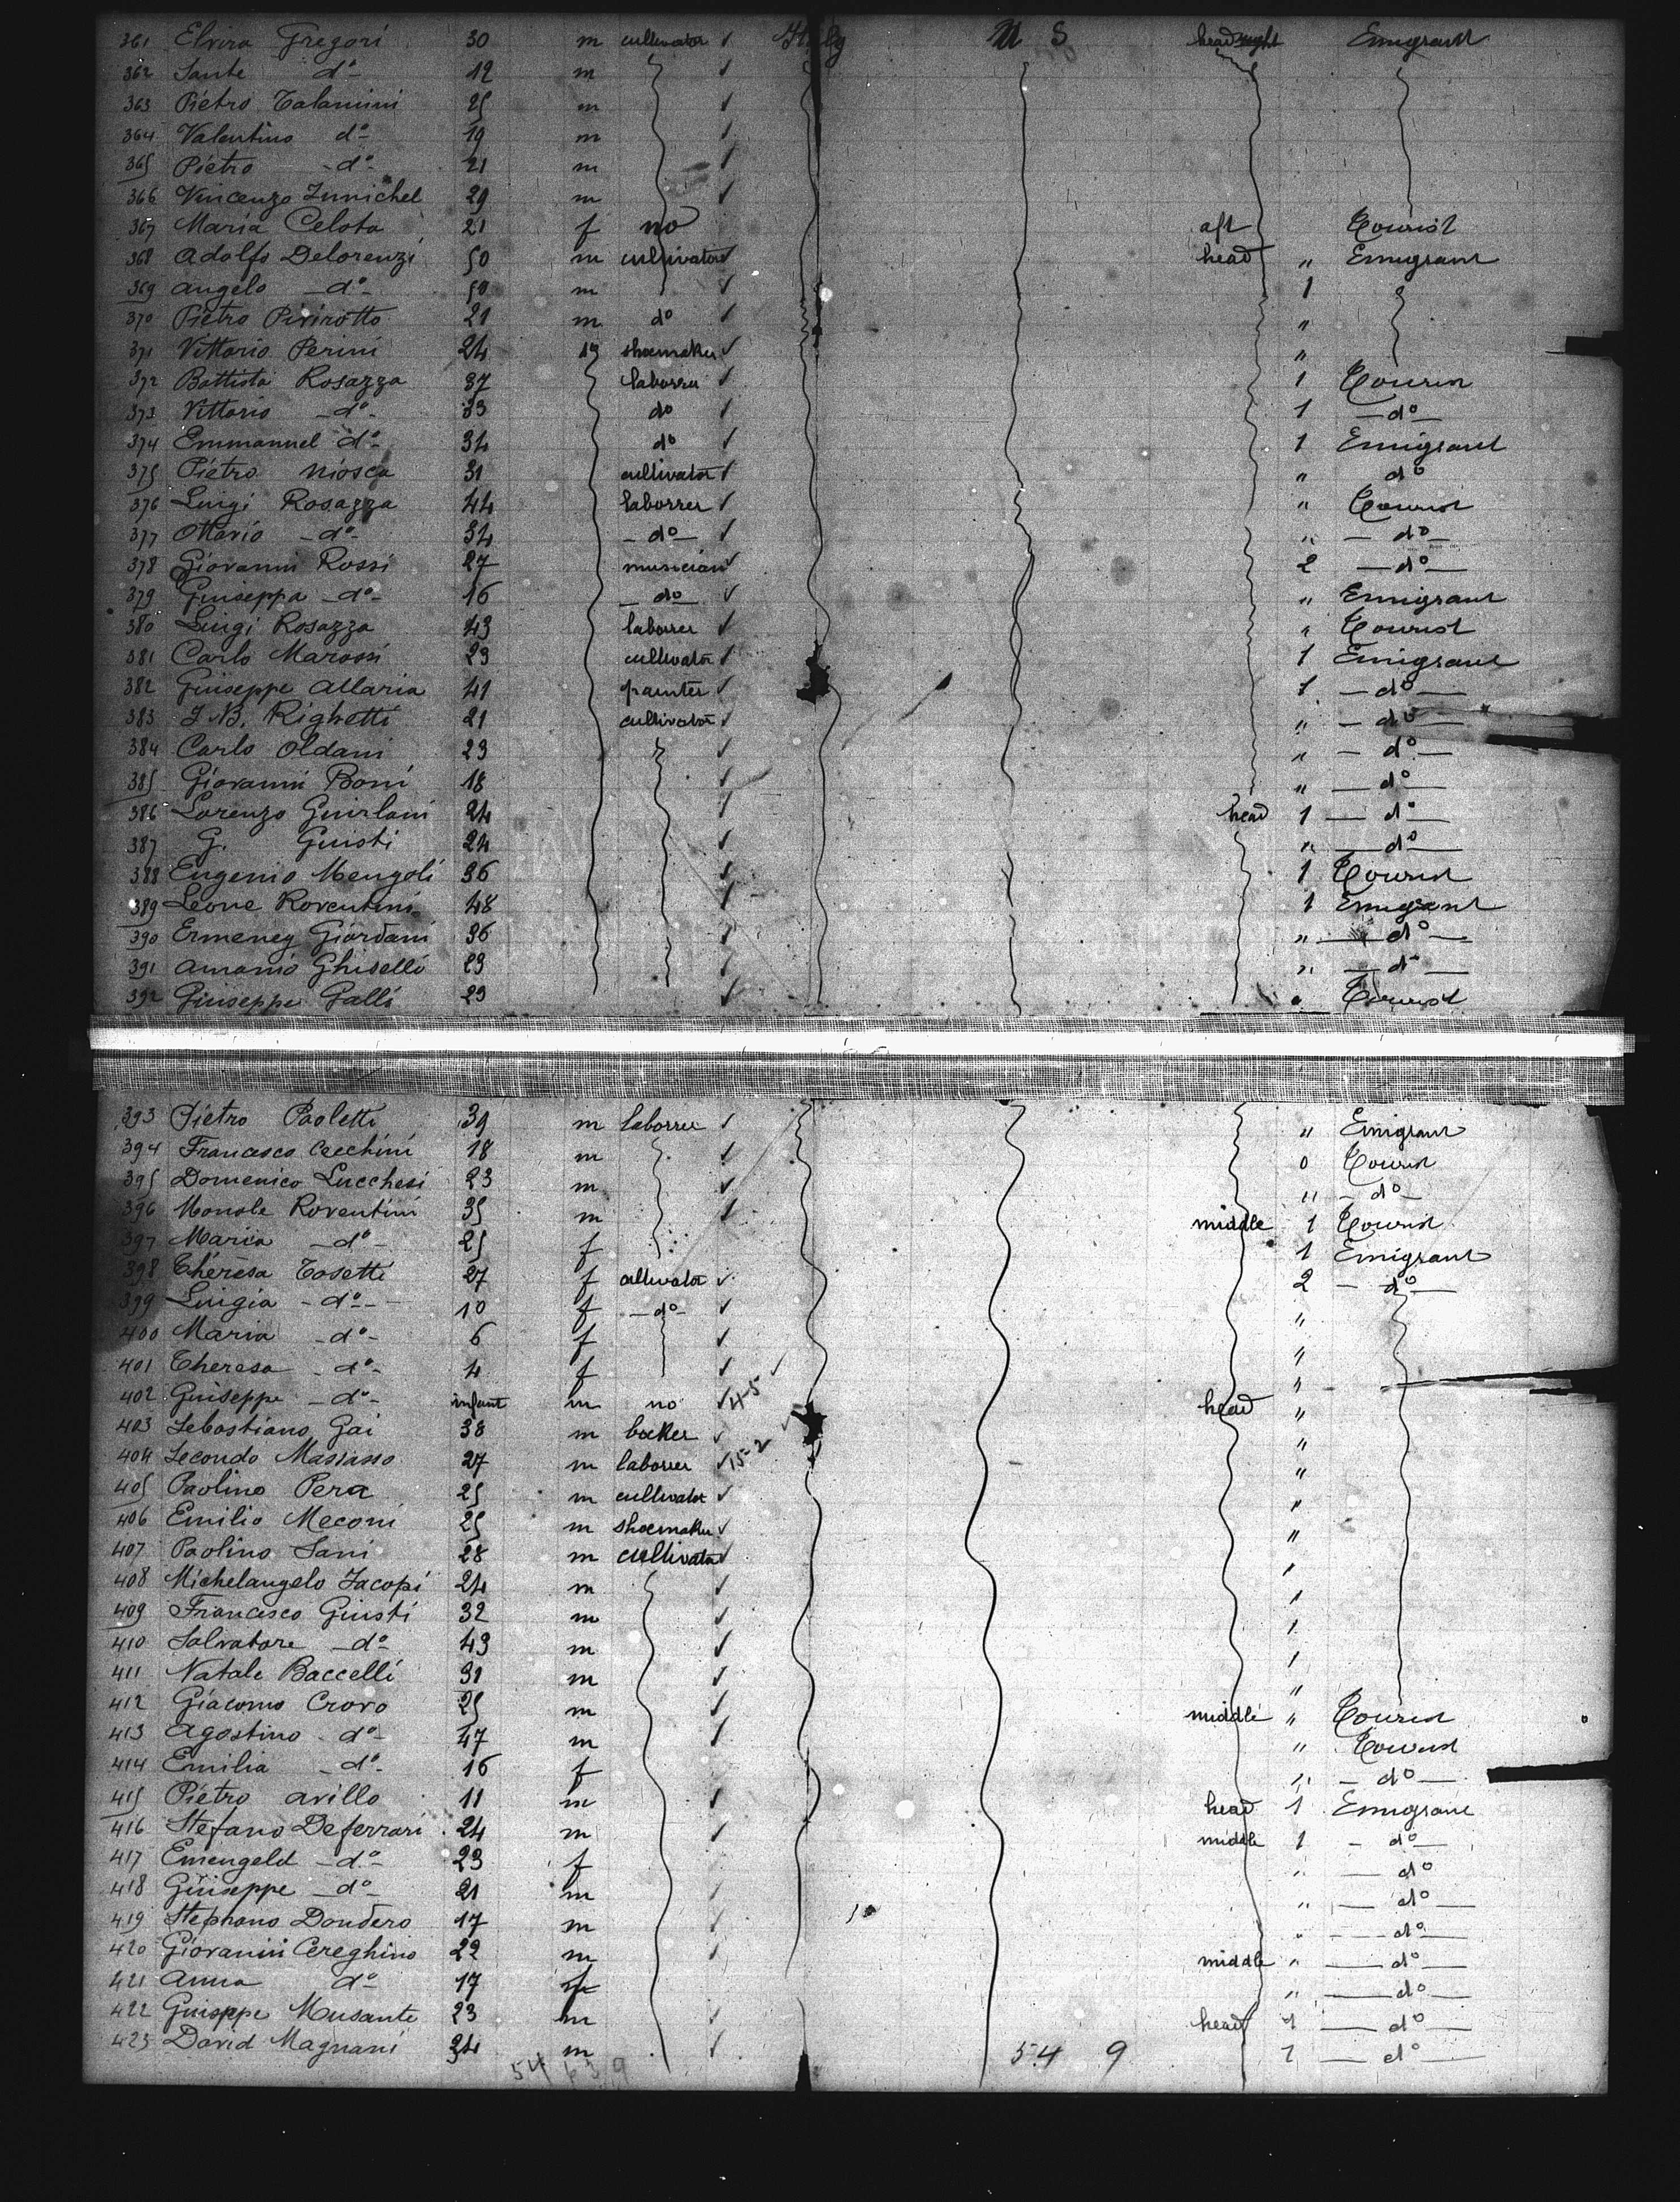 361 Elvira Gregori 30 m cultivator ✓ Italy U S head Emigrant
362 Sante do 12 m ✓
363 Pietro Talamini 25 m ✓
364 Valentino do 19 m ✓
365 Pietro do 21 m ✓
366 Vincenzo Zunichel 29 m ✓
367 Maria Celota 21 f no aft Tourist
368 Adolfo Delorenzi 50 m cultivator ✓ head " Emigrant
369 Angelo do 50 m ✓ 1
370 Pietro Pivirotto 21 m do ✓ "
371 Vittorio Perini 24 m shoemaker ✓ "
372 Battista Rosazza 37 laborrer ✓ 1 Tourist
373 Vittorio do 33 do ✓ 1 do
374 Emmanuel do 34 do ✓ 1 Emigrant
375 Pietro Niosca 31 cultivator ✓ " do
376 Luigi Rosazza 44 laborrer ✓ " Tourist
377 Ottavio do 34 do ✓ " do
378 Giovanni Rossi 27 musician ✓ 2 do
379 Guiseppa do 16 do ✓ " Emigrant
380 Luigi Rosazza 43 laborrer ✓ " Tourist
381 Carlo Marossi 23 cultivator ✓ 1 Emigrant
382 Guiseppe Allaria 41 painter ✓ 1 do
383 J. B. Righetti 21 cultivator ✓ " do
384 Carlo Oldani 23 ✓ " do
385 Giovanni Boni 18 ✓ " do
386 Lorenzo Guirlani 24 ✓ head 1 do
387 G. Guisti 24 ✓ " do
388 Eugenio Mengoli 36 ✓ 1 Tourist
389 Leone Roventini 48 ✓ 1 Emigrant
390 Ermeneg Giordani 36 ✓ " do
391 Amanio Ghiselli 23 ✓ " do
392 Guiseppe Galli 23 ✓ " Tourist
393 Pietro Paoletti 39 m laborrer ✓ " Emigrant
394 Francesco Cecchini 18 m ✓ 0 Tourist
395 Domenico Lucchesi 23 m ✓ " do
396 Monole Roventini 35 m ✓ middle 1 Tourist
397 Maria do 25 f 1 Emigrant
398 Theresa Tosetti 27 f cultivator ✓ 2 do
399 Luigia do 10 f do ✓ "
400 Maria do 6 f ✓ "
401 Theresa do 4 f ✓ "
402 Guiseppe do infant m no ✓ 4-5 ✓ head "
403 Sebastiano Gai 38 m backer ✓ "
404 Secondo Massasso 27 m laborrer ✓ 15-2 ✓ "
405 Paolino Pera 25 m cultivator ✓ "
406 Emilio Meconi 25 m shoemaker ✓ "
407 Paolino Sani 28 m cultivator ✓ 1
408 Michelangelo Jacopi 24 m ✓ 1
409 Francesco Giusti 32 m ✓ 1
410 Salvatore do 43 m ✓ 1
411 Natale Baccelli 31 m ✓ "
412 Giacomo Crovo 25 m ✓ middle " Tourist
413 Agostino do 47 m ✓ " Tourist
414 Emilia do 16 f " do
415 Pietro Avillo 11 m ✓ head 1 Emigrant
416 Stefano Deferrari 24 m ✓ middle 1 do
417 Emengeld do 23 f " do
418 Guiseppe do 21 m ✓ " do
419 Stephano Dondero 17 m ✓ " do
420 Giovanni Cereghino 22 m ✓ middle " do
421 Anna do 17 f " do
422 Guiseppe Musante 23 m ✓ head 1 do
423 David Magnani 34 m ✓ 1 do
54 9